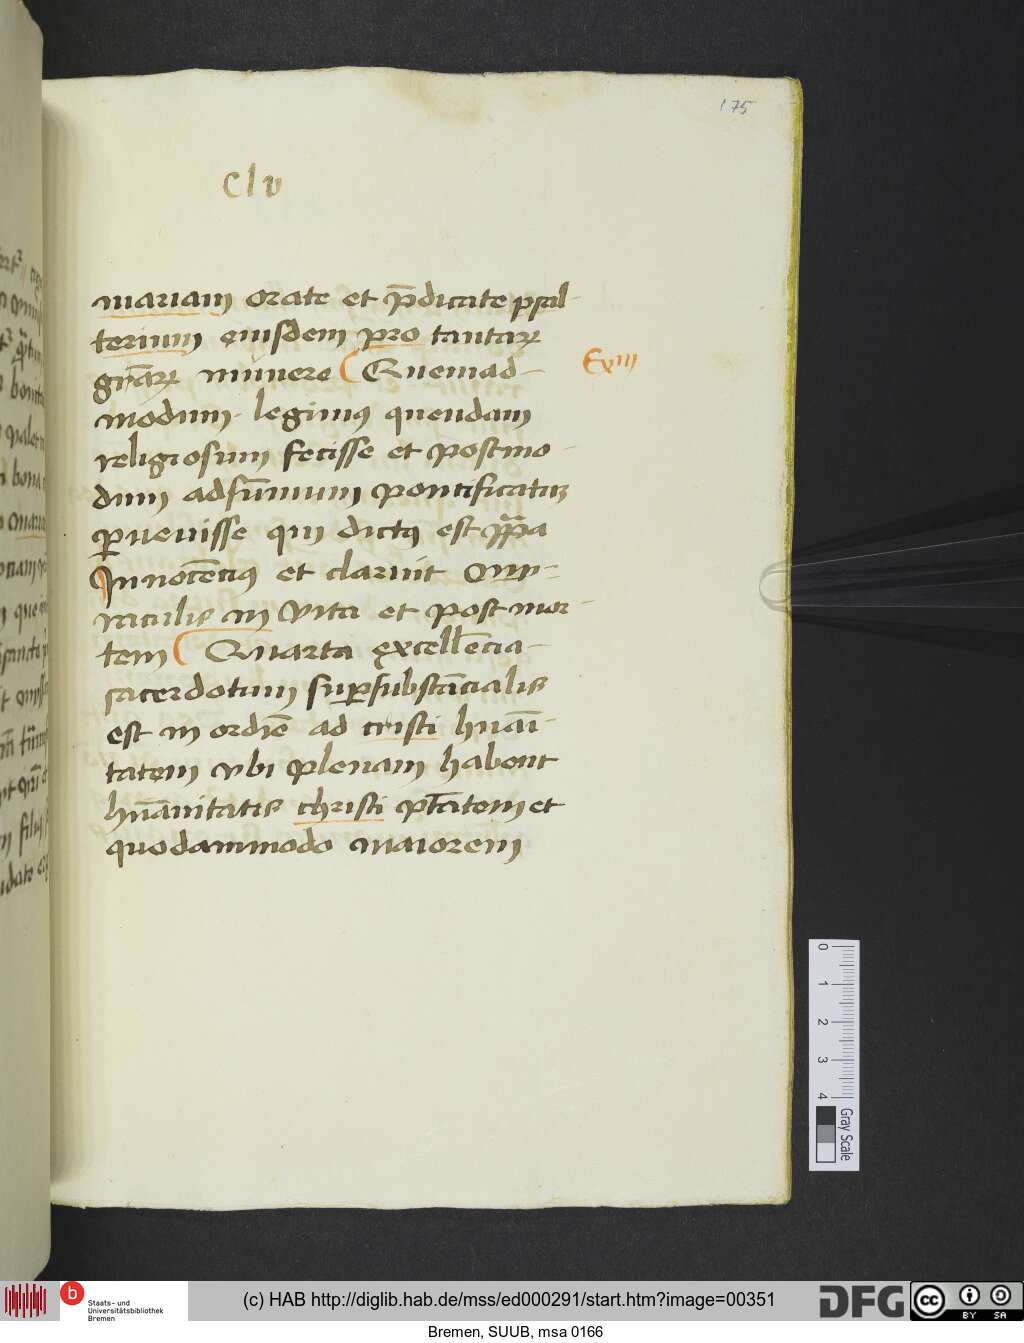 175
Clv
mariam orate et p̄dicate psal-
terium eiusdem pro tantaꝝ
gr̄aꝝ munere Quemad-
Exiii
modum legimꝰ quendam
religiosum fecisse et postmo-
dum ad sūmum pontificatus
ꝑuenisse qui dictꝰ est pp̄a
Innocēciꝰ et claruit
raculis in vita et post mor-
tem Quarta excellēcia-
sacerdotum suꝑsubstācialis
est in ordīe ad cristi huāi-
tatem vbi plenam habent
huānitatis christi pt̄atem et
quodammodo maiorem
0 1 2 3 4
Gray Scale
b
Staats- und
Universitätsbibliothek
Bremen
(c) HAB http://diglib.hab.de/mss/ed000291/start.htm?image=00351
DFG
cc BY SA
Bremen, SUUB, msa 0166